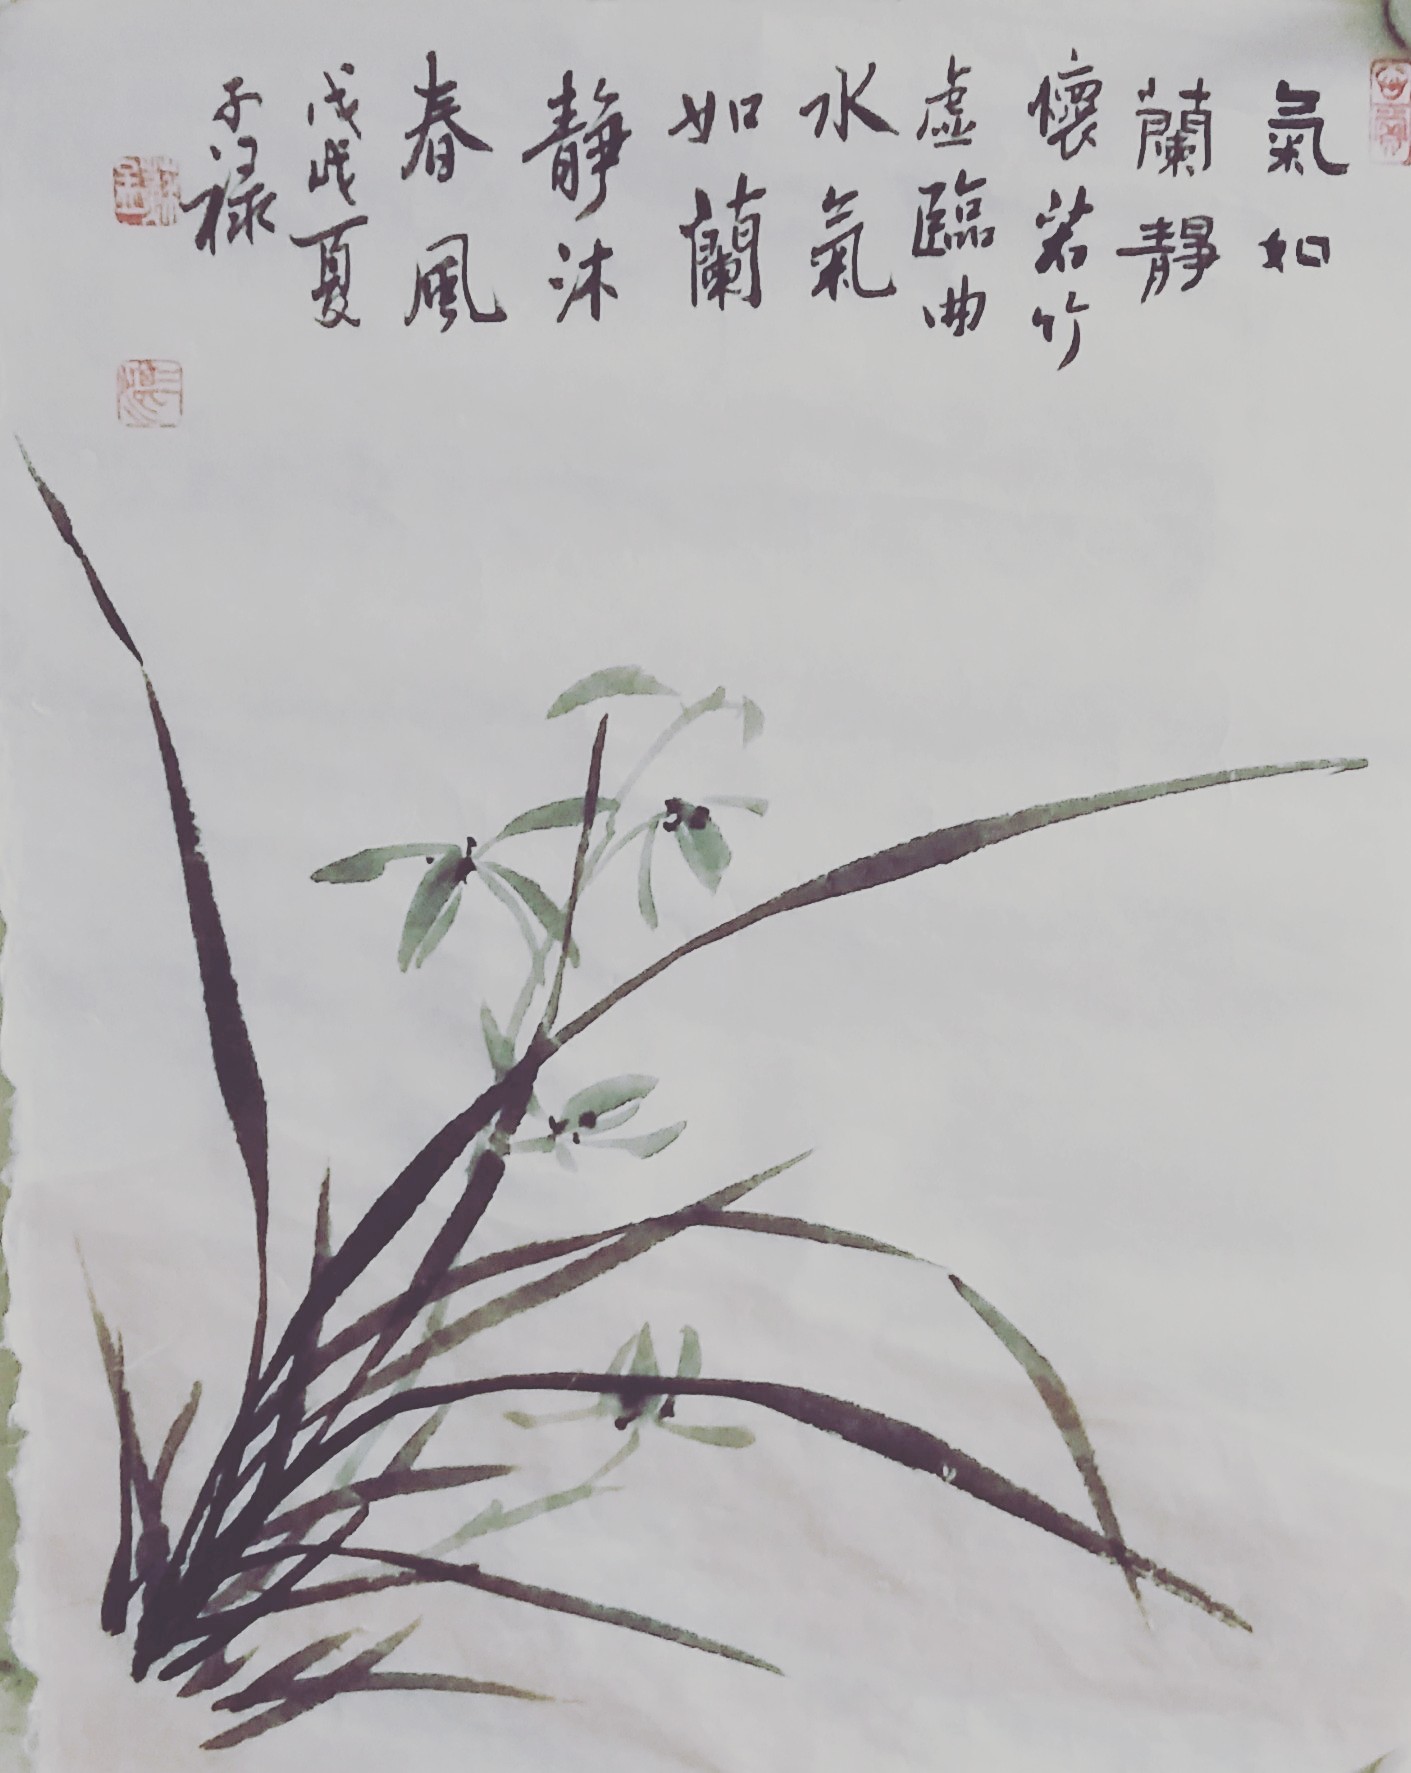 氣如
蘭靜
懷若竹
虛臨曲
水氣
如蘭
靜沐
春風
戊戌夏
子禄